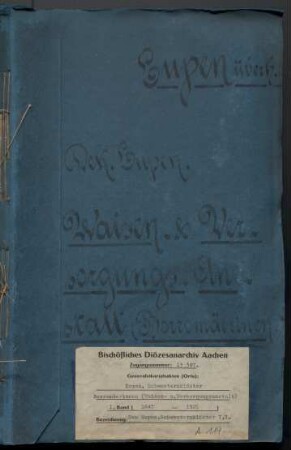 Eupen überh.
Dek. Eupen.
Waisen- & Ver-
sorgungs-An-
stalt (Borromäerinnen)
Bischöfliches Diözesanarchiv Aachen
Zugangsnummer:
Generalvikariatakten (Orte):
Eupen, Schwesternklöster
1. Band ( 1847 — 1921 )
Bezeichnung: Gvo Eupen, Schwesternklöster 2,I.